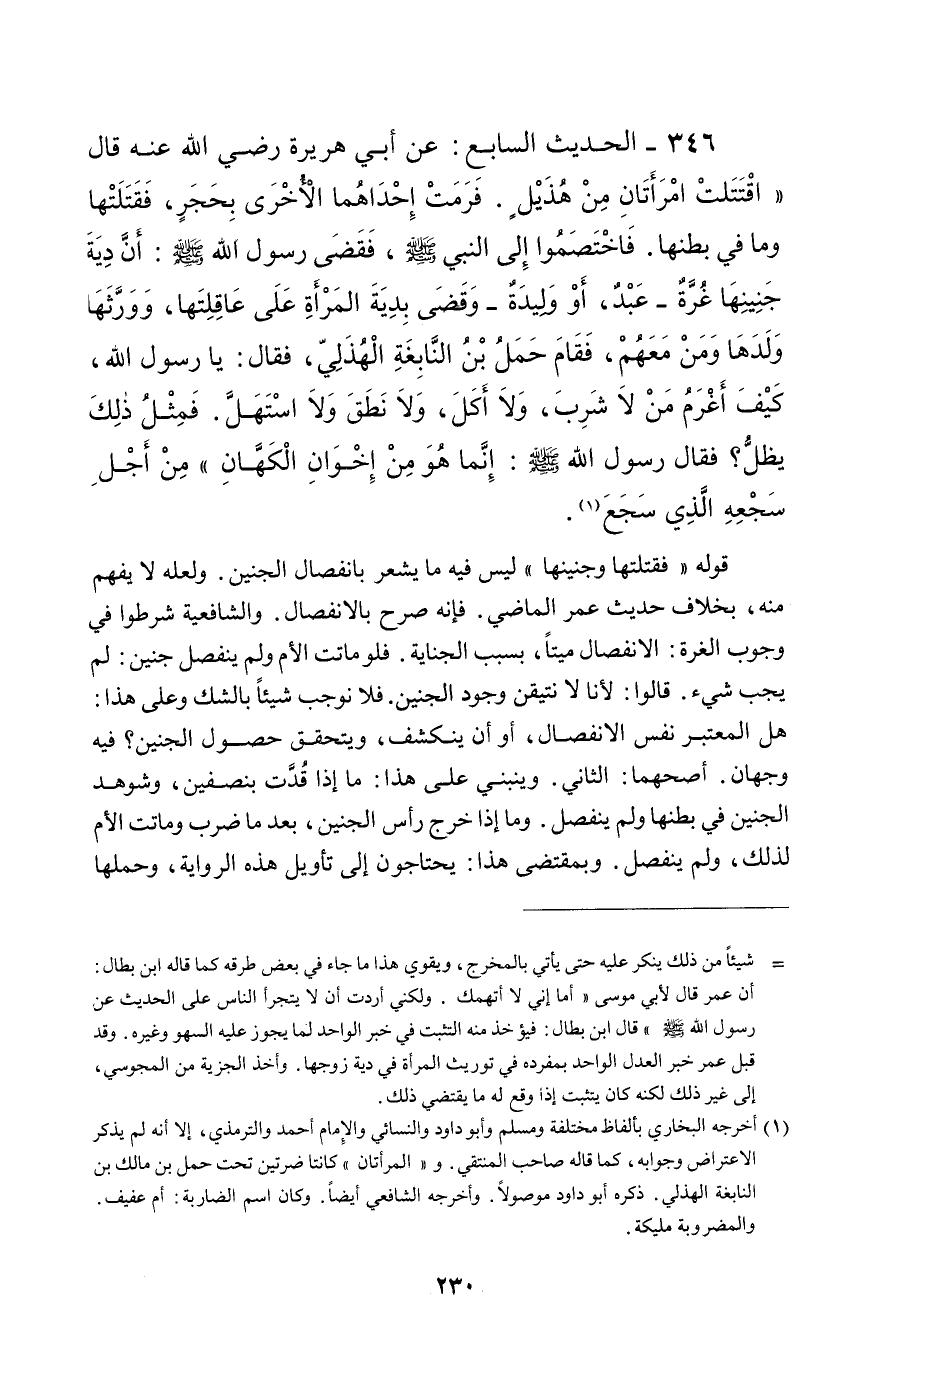 ٣٤٦ ـ الحديث السابع : عن أبي هريرة رضي الله عنه قال
« اقْتَتَلتْ امْرَأَتَانِ مِنْ هُذَيْلٍ . فَرَمَتْ إِحْدَاهُما الْأُخْرَى بِحَجَرٍ ، فَقَتَلَتْها
وما في بطنها . فَاخْتَصَمُوا إِلى النبي ﷺ ، فَقَضَى رسول الله ﷺ : أَنَّ دِيَةَ
جَنِينِهَا غُرَّةٌ ـ عَبْدٌ ، أَوْ وَلِيدَةٌ ـ وَقَضَى بِدِيَةَ المَرْأَةِ عَلَى عَاقِلِتَها ، وَوَرَّثَهَا
وَلَدَهَا وَمَنْ مَعَهُمْ ، فَقَامَ حَمَلُ بْنُ النَّابِغَةِ الْهُذَلِيّ ، فقال : يا رسول الله ،
كَيْفَ أَغْرَمُ مَنْ لاَ شَرِبَ ، وَلاَ أَكَلَ ، وَلاَ نَطَقَ وَلاَ اسْتَهَلَّ . فَمِثْلُ ذٰلِكَ
يظلُّ؟ فقال رسول الله ﷺ : إِنَّما هُوَ مِنْ إِخْوَانِ الْكَهَّانِ » مِنْ أَجْلِ
سَجْعِهِ الَّذِي سَجَعَ(١) .
قوله « فقتلتها وجنينها » ليس فيه ما يشعر بانفصال الجنين . ولعله لا يفهم
منه ، بخلاف حديث عمر الماضي . فإنه صرح بالانفصال . والشافعية شرطوا في
وجوب الغرة : الانفصال ميتاً ، بسبب الجناية . فلو ماتت الأم ولم ينفصل جنين : لم
يجب شيء . قالوا : لأنا لا نتيقن وجود الجنين . فلا نوجب شيئاً بالشك وعلى هذا :
هل المعتبر نفس الانفصال ، أو أن ينكشف ، ويتحقق حصول الجنين؟ فيه
وجهان . أصحهما : الثاني . وينبني على هذا : ما إذا قُدَّت بنصفين ، وشوهد
الجنين في بطنها ولم ينفصل . وما إذا خرج رأس الجنين ، بعد ما ضرب وماتت الأم
لذلك ، ولم ينفصل . وبمقتضى هذا : يحتاجون إلى تأويل هذه الرواية ، وحملها
= شيئاً من ذلك ينكر عليه حتى يأتي بالمخرج ، ويقوي هذا ما جاء في بعض طرقه كما قاله ابن بطال :
أن عمر قال لأبي موسى « أما إني لا أتهمك . ولكني أردت أن لا يتجرأ الناس على الحديث عن
رسول الله ﷺ » قال ابن بطال : فيؤخذ منه التثبت في خبر الواحد لما يجوز عليه السهو وغيره . وقد
قبل عمر خبر العدل الواحد بمفرده في توريث المرأة في دية زوجها . وأخذ الجزية من المجوسي ،
إلى غير ذلك لكنه كان يتثبت إذا وقع له ما يقتضي ذلك .
(١) أخرجه البخاري بألفاظ مختلفة ومسلم وأبو داود والنسائي والإمام أحمد والترمذي ، إلا أنه لم يذكر
الاعتراض وجوابه ، كما قاله صاحب المنتقي . و « المرأتان » كانتا ضرتين تحت حمل بن مالك بن
النابغة الهذلي . ذكره أبو داود موصولاً . وأخرجه الشافعي أيضاً . وكان اسم الضاربة : أم عفيف .
والمضروبة مليكة .
٢٣٠